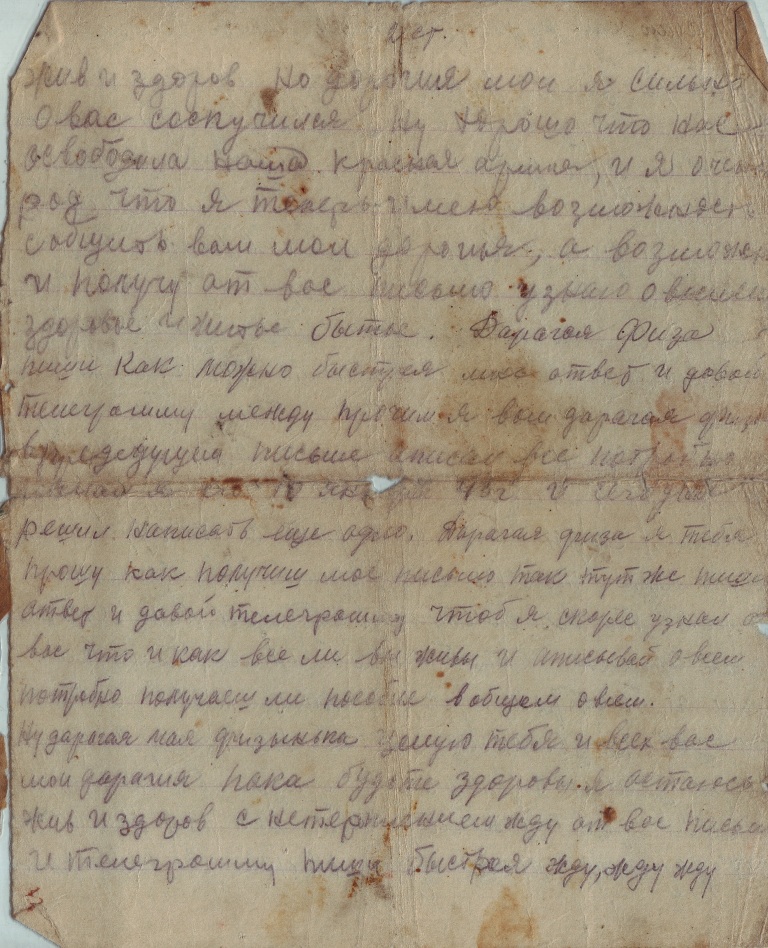 жив и здоров но дорогия мои я сильно
о вас соскучился. Ну хорошо что нас
освободила наша красная армия, и я очень
рад что я теперь имею возможность
сообщить вам мои дорогия, а возможно
и получу от вас письмо узнаю о вашем
здоровье и житье бытье. Дарагая Физа
пиши как можно быстрея мне ответ и давай
телеграмму между прочим я вам дарагая физа
в предедущем письме описал все потробно
10 января 43 г. и сегодня
решил написать еще одно. Дарагая физа я тебя
прошу как получиш мое письмо так тут же пиши
ответ и давай телеграмму чтоб я скорее узнал о
вас что и как все ли вы живы и описывай о всем
потробно получаеш ли пособие вобщем о всем.
Ну дарагая мая физынька целую тебя и всех вас
мои дарагия пака будьте здоровы я остаюсь
жив и здоров с нетерпением жду от вас письма
и телеграмму пиши быстрея жду, жду жду